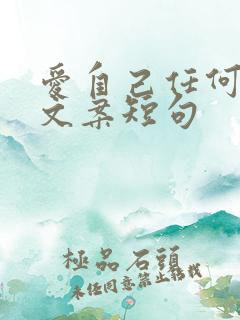 爱自己任何
文案短句
極品石頭
未经同意禁止转载